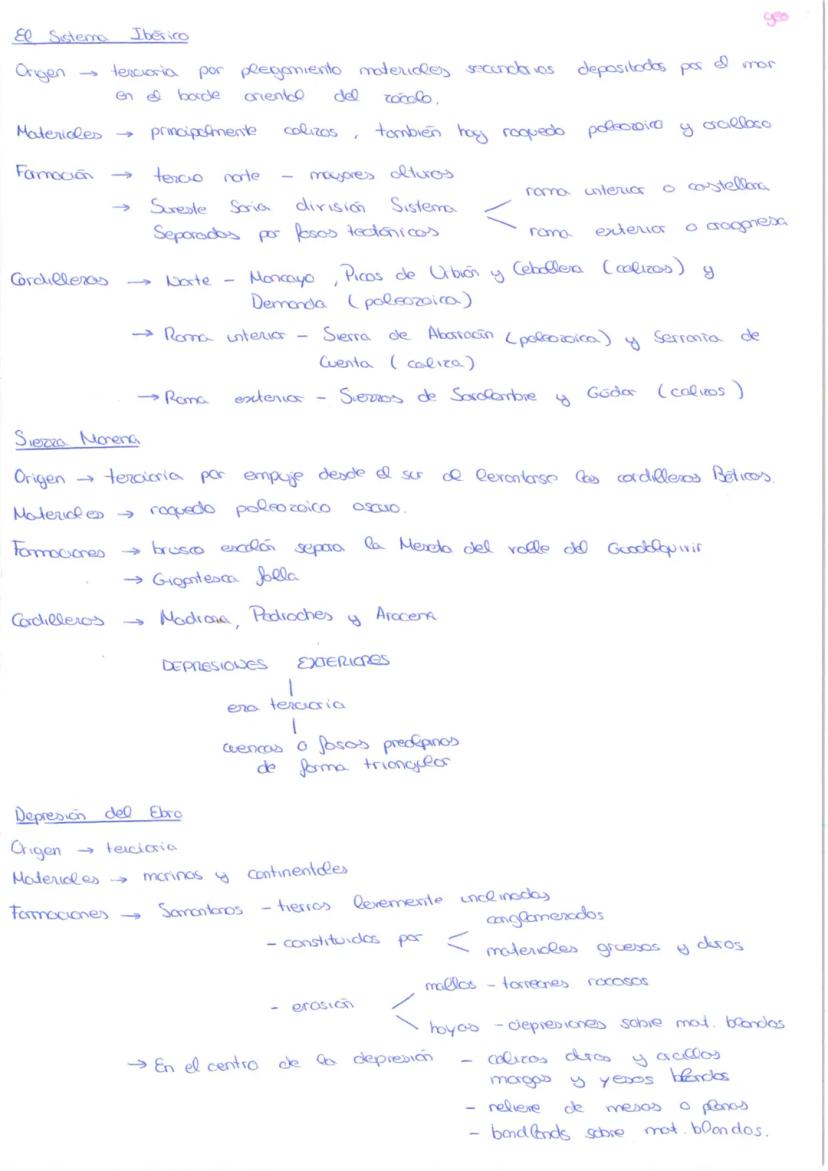 geo
El Sistema Ibérico
Origen → terciaria por plegamiento materiales secundarios depositados por el mar
en el borde oriental del zócalo.
Materiales → principalmente calizas, también hay roquedo paleozoico y arcilloso
Formación → tercio norte - mayores alturas
→ Sureste Soria división Sistema < rama interior o castellana
Separados por fosas tectónicas rama exterior o aragonesa
Cordilleras → Norte - Moncayo, Picos de Urbión y Cebollera (calizas) y
Demanda (paleozoica)
→ Rama interior - Sierra de Albarracín (paleozoica) y Serranía de
Cuenca (caliza)
→ Rama exterior - Sierras de Javalambre y Gúdar (calizas)
Sierra Morena
Origen → terciaria por empuje desde el sur al levantarse las cordilleras Béticas.
Materiales → roquedo paleozoico oscuro.
Formaciones → brusco escalón separa la Meseta del valle del Guadalquivir
→ Gigantesca falla
Cordilleras → Madrona, Pedroches y Aracena
DEPRESIONES EXTERIORES
era terciaria
cuencas o fosas prealpinas
de forma triangular
Depresión del Ebro
Origen → terciaria
Materiales → marinos y continentales
Formaciones → Somontanos - tierras levemente inclinadas
- constituidos por < conglomerados
materiales gruesos y duros
- erosión < mallos - torreones rocosos
hoyas - depresiones sobre mat. blandos
→ En el centro de la depresión - calizas duras y arcillas
margas y yesos blandos
- relieve de mesas o planas
- bandlands sobre mat. blandos.